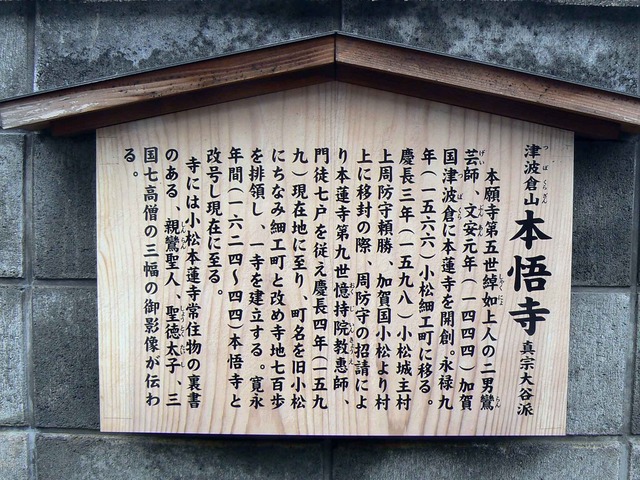 津波倉山 本悟寺 真宗大谷派
つばくらざん
本願寺第五世綽如上人の二男鸞
しゃくにょ
らん
芸師、文安元年(一四四四)加賀
げい
ぶんあん
国津波倉に本蓮寺を開創。永禄九
つばくら
年(一五六六)小松細工町に移る。
慶長三年(一五九八)小松城主村
上周防守頼勝、加賀国小松より村
上に移封の際、周防守の招請によ
り本蓮寺第九世憶持院教惠師、
おくじいんきょうえ
門徒七戸を従え慶長四年(一五九
九)現在地に至り、町名を旧小松
にちなみ細工町と改め寺地七百歩
を排領し、一寺を建立する。寛永
年間(一六二四〜四四)本悟寺と
改号し現在に至る。
寺には小松本蓮寺常住物の裏書
のある、親鸞聖人、聖徳太子、三
しんらん
しょうとくたいし
国七高僧の三幅の御影像が伝わ
る。